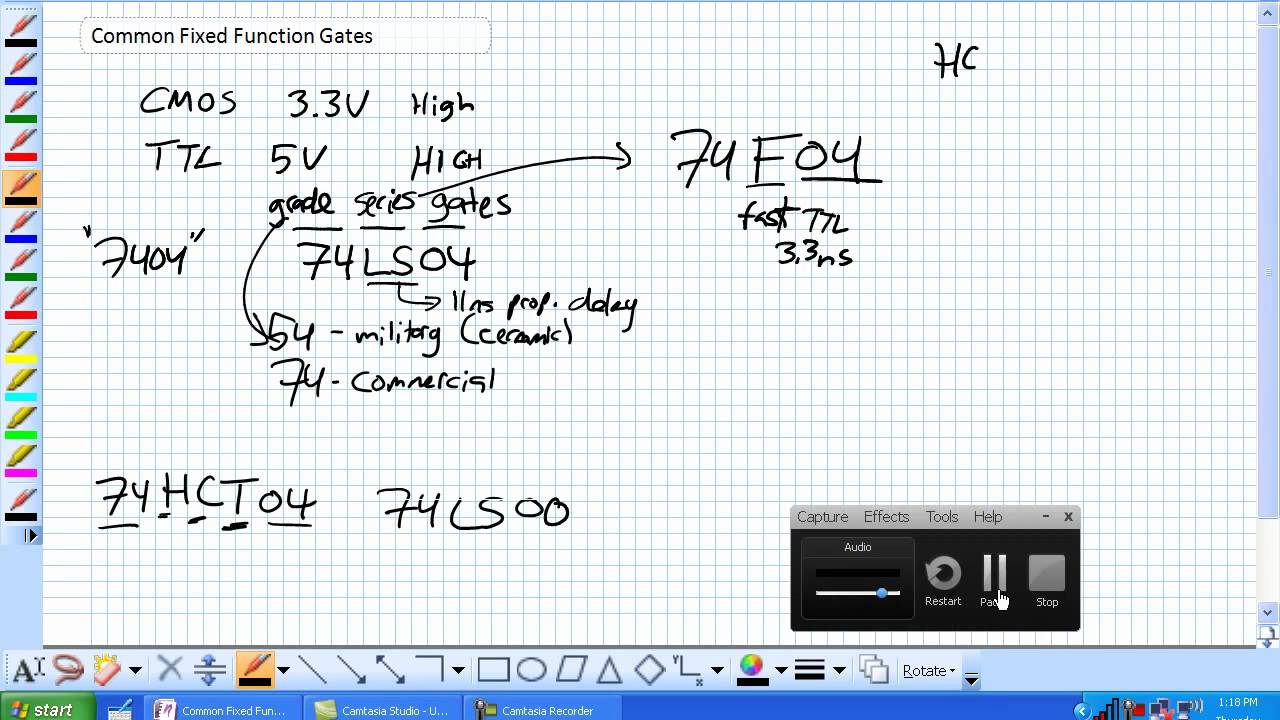 Common Fixed Function Gates
HC
CMOS 3.3V High
TTL 5V HIGH
74F04
grade series gates
fast TTL
"7404" 74LS04
3.3ns
11ns prop. delay
54 - military (ceramic)
74 - commercial
74HCT04 74LS00
Capture Effects Tools Help - x
Audio
Restart Pau Stop
A
Rotate
start Common Fixed Fun... Camtasia Studio - U... Camtasia Recorder 1:18 PM
Thursday